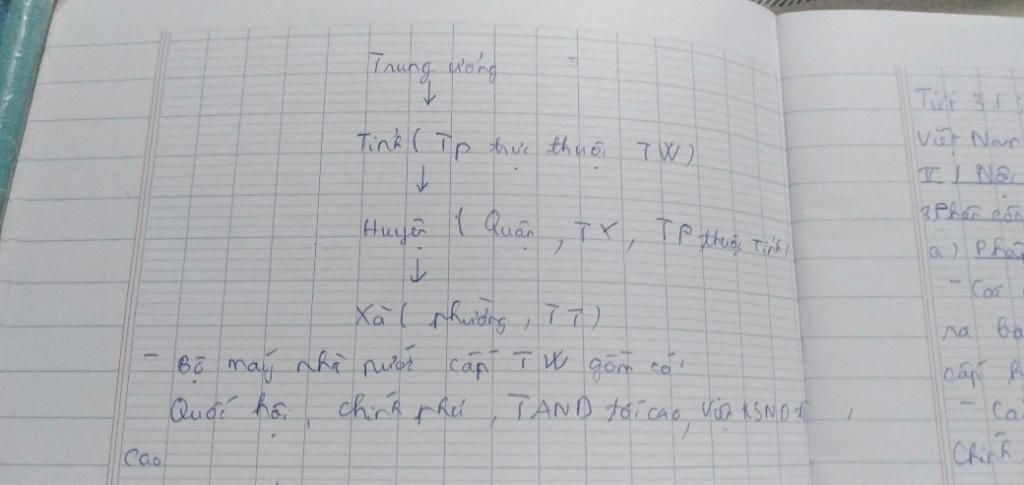 Trung ương
↓
Tỉnh ( Tp trực thuộc TW)
↓
Huyện ( Quận , TX , TP thuộc Tỉnh)
↓
Xã ( phường , TT )
- Bộ máy nhà nước cấp TW gồm có:
Quốc hội , chính phủ , TAND tối cao, Viện KSND tối
cao
Tiết 31
Việt Nam
II / Nội
3 Phân côn
a) Phâ
- Các
ra ba
cấp
- Cơ
Chính